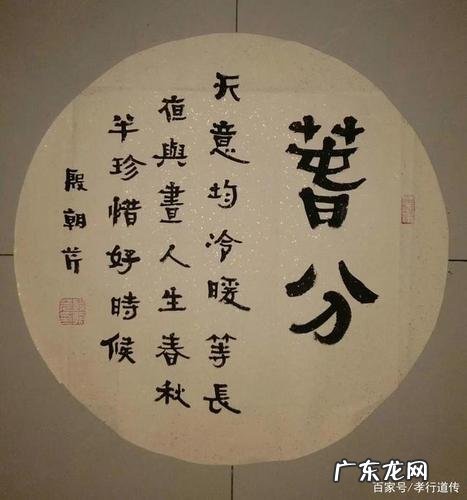 萅分
天意均冷暖等長
夜與晝人生春秋
半珍惜好時候
殷朝芹
百家号/孝行道传
广东龙网